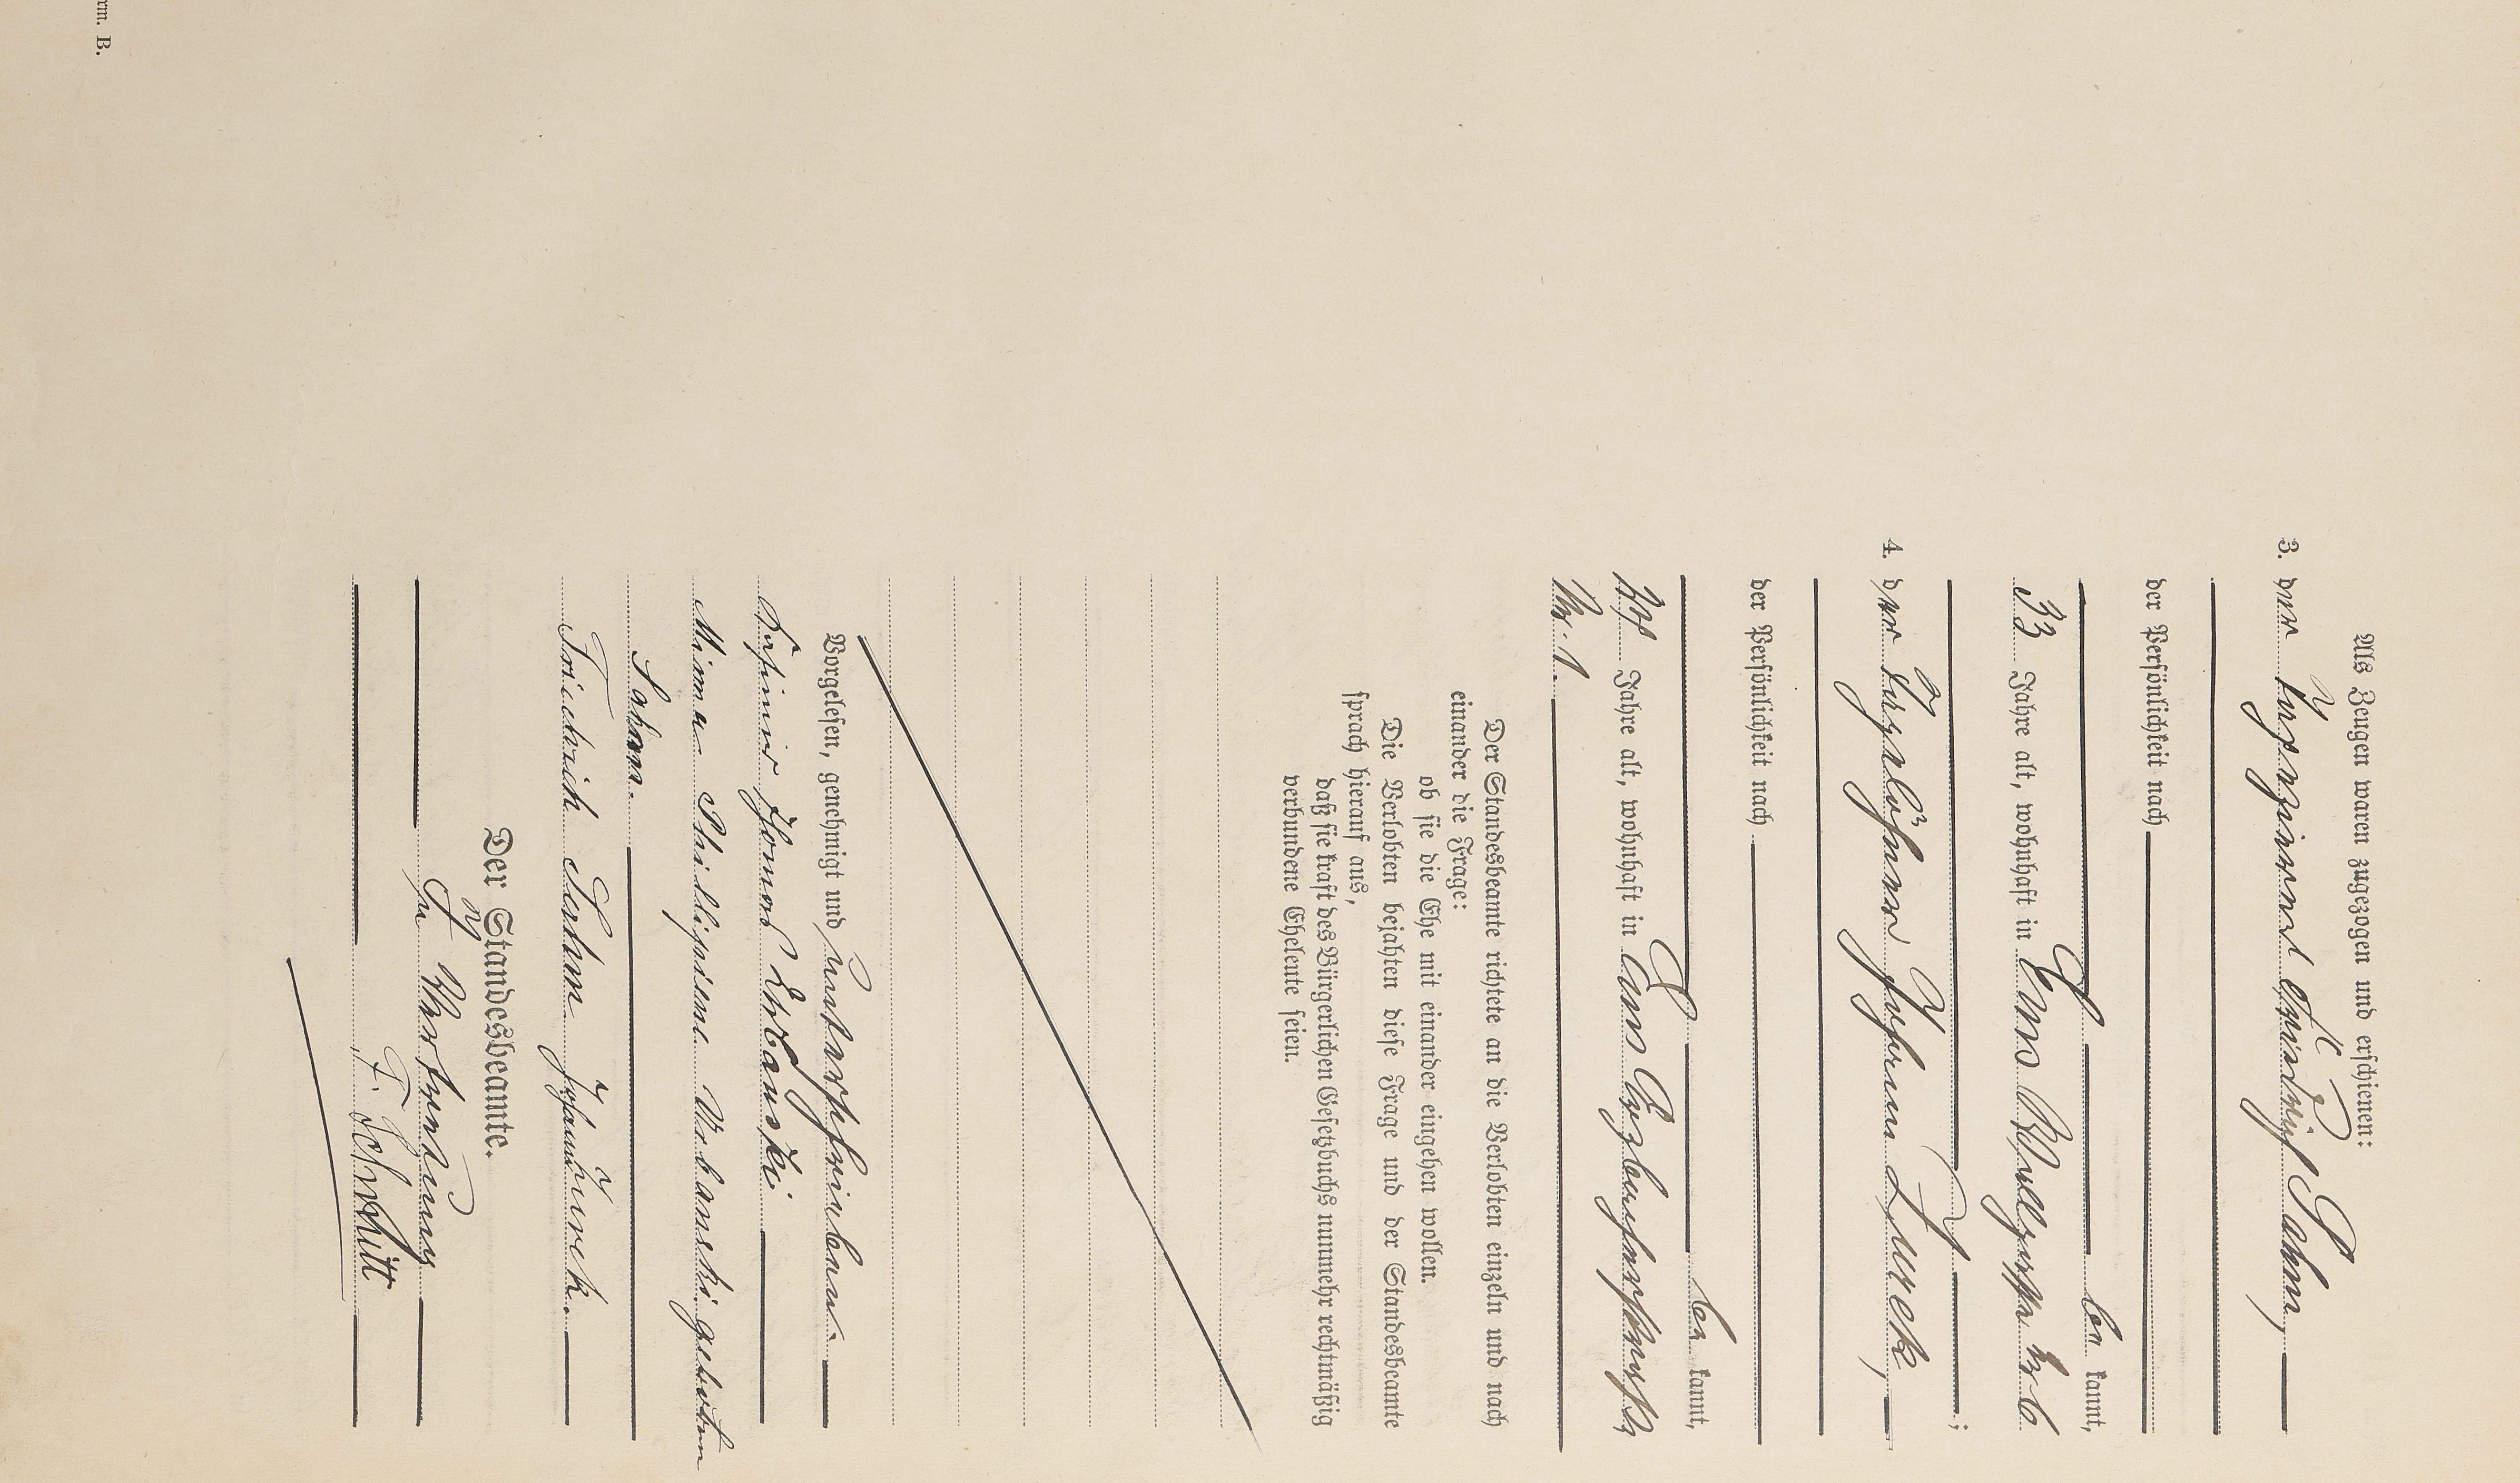 Als Zeugen waren zugezogen und erschienen:
3. der Friedrich Sahm,
der Persönlichkeit nach
be kannt,
33 Jahre alt, wohnhaft in
;
4. der Tagelöhner Johann Turek,
der Persönlichkeit nach
be kannt,
Jahre alt, wohnhaft in
Nr. 1.
Der Standesbeamte richtete an die Verlobten einzeln und nach
einander die Frage:
ob sie die Ehe mit einander eingehen wollen.
Die Verlobten bejahten diese Frage und der Standesbeamte
sprach hierauf aus,
daß sie kraft des Bürgerlichen Gesetzbuchs nunmehr rechtmäßig
verbundene Eheleute seien.
Vorgelesen, genehmigt und unterschrieben.
Thomas Urbanski
Minna Philippine Urbanski geborene
Sahm.
Friedrich Sahm Johann Turek.
Der Standesbeamte.
In Vertretung
F. Schmitt
Form. B.